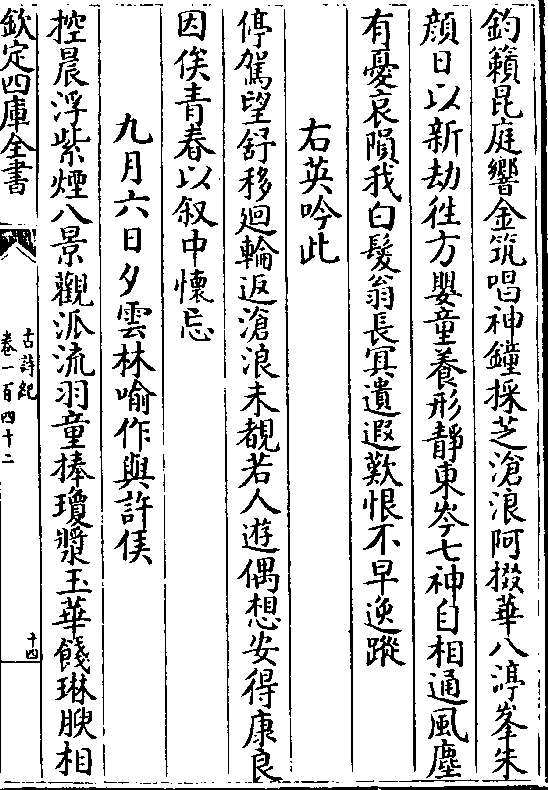 釣籟昆庭響金筑唱神鐘採芝滄浪阿掇華八渟峯朱
顔日以新劫往方嬰童養形靜東岑七神自相通風塵
有憂哀隕我白髮翁長冥遺遐歎恨不早逸蹤
右英吟此
停駕望舒移廻輪返滄浪未覩若人遊偶想安得康良
因俟青春以叙中懷忘
九月六日夕雲林喻作與許侯
控晨浮紫煙八景觀派流羽童捧瓊漿玉華餞琳腴相
欽定四庫全書
古詩紀
卷一百四十二
十四